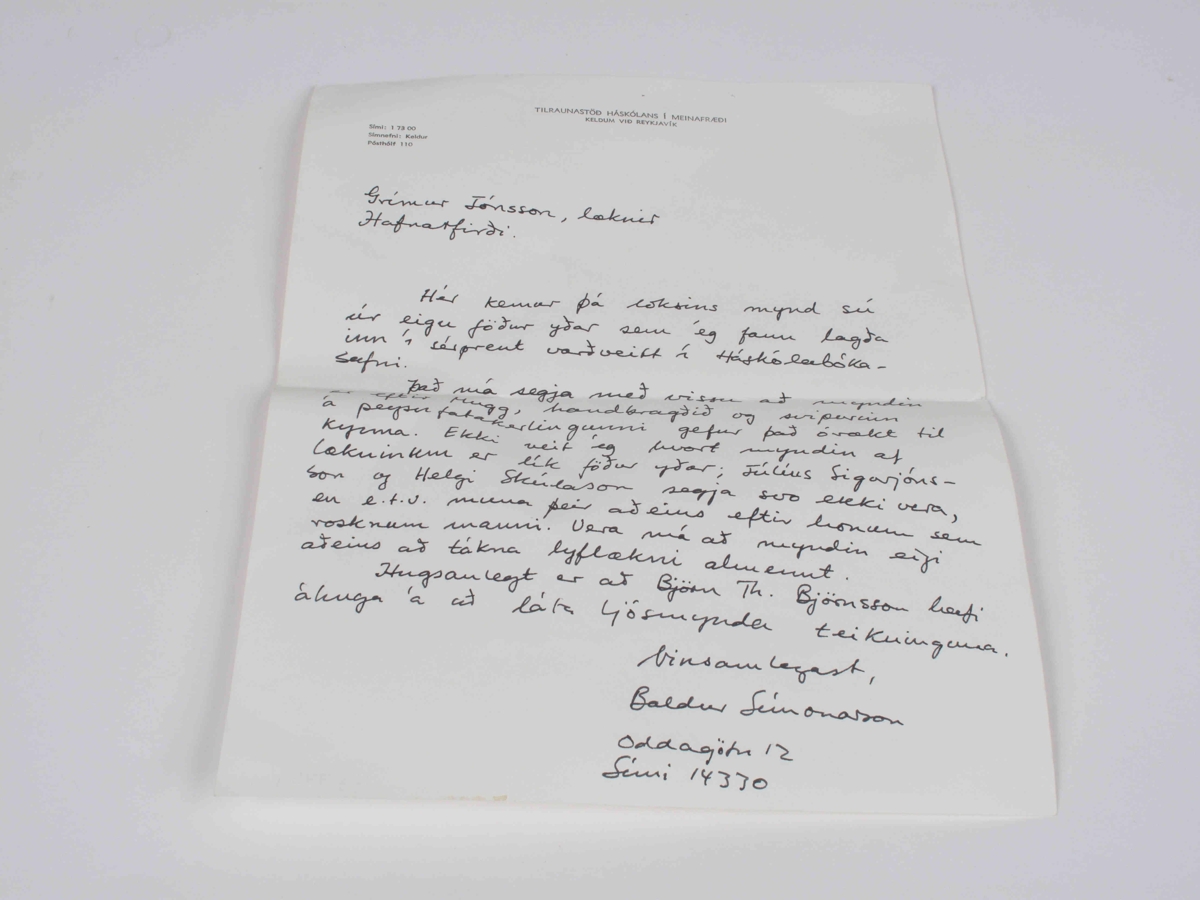 TILRAUNASTÖÐ HÁSKÓLANS Í MEINAFRÆÐI
KELDUM VIÐ REYKJAVÍK
Sími: 1 73 00
Símnefni: Keldur
Pósthólf 110
Grímur Jónsson, læknir
Hafnarfirði.
Hér kemur þá loksins mynd sú
úr eigu föður yðar sem ég fann lagða
inn í sérprent varðveitt í Háskólabóka-
safni.
Það má segja með vissu að myndin
er eftir Mugg, handbragðið og svipurinn
á peysufatakerlingunni gefur það órækt til
kynna. Ekki veit ég hvort myndin af
lækninum er lík föður yðar; Júlíus Sigurjóns-
son og Helgi Skúlason segja svo ekki vera,
en e.t.v. muna þeir aðeins eftir honum sem
rosknum manni. Vera má að myndin eigi
aðeins að tákna lyflækni almennt.
Hugsanlegt er að Björn Th. Björnsson hafi
áhuga á að láta ljósmynda teikninguna.
Vinsamlegast,
Baldur Símonarson
Oddagötu 12
Sími 14330